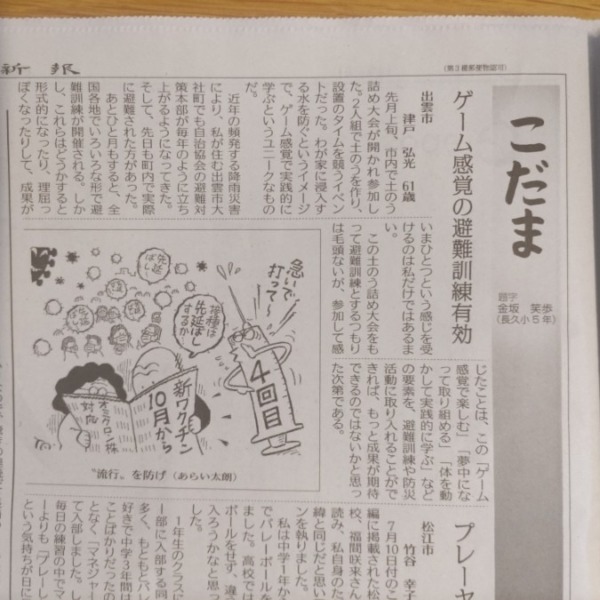 新報
(第3種郵便物認可)
こだま
題字
金坂 笑歩
(長久小5年)
ゲーム感覚の避難訓練有効
出雲市
津戸 弘光 61歳
先月上旬、市内で土のう
詰め大会が開かれ参加し
た。2人組で土のうを作り、
設置のタイムを競うイベン
トだった。わが家に浸入す
る水を防ぐというイメージ
で、ゲーム感覚で実践的に
学ぶというユニークなもの
だ。
近年の頻発する降雨災害
により、私が住む出雲市大
社町でも自治協会の避難対
策本部が毎年のように立ち
上がるようになってきた。
そして、先日も町内で実際
に避難された方があった。
あとひと月もすると、全
国各地でいろいろな形で避
難訓練が開催される。しか
し、これらはどうかすると
形式的になったり、理屈っ
ぽくなったりして、成果が
いまひとつという感じを受
けるのは私だけではあるま
い。
この土のう詰め大会をも
って避難訓練とするつもり
は毛頭ないが、参加して感
じたことは、この「ゲーム
感覚で楽しむ」「夢中にな
って取り組める」「体を動
かして実践的に学ぶ」など
の要素を、避難訓練や防災
活動に取り入れることがで
きれば、もっと成果が期待
できるのではないかと思っ
た次第である。
急いで
打って〜
4回目
接種は
先延ばし
するか
先延
ばし
新ワクチン
10月から
オミクロン株
対応
“流行”を防げ(あらい太朗)
プレーヤ
松江市
竹谷 幸子
7月10日付のこ
編に掲載された松
校、福間咲来さん
読み、私自身のた
緯と同じだと思い
ンを執りました。
私は中学1年か
でバレーボールを
ました。高校では
ボールをせず、違
入ろうかなと思っ
した。
1年生のクラスに
ー部に入部する同
多く、もともとバレ
好きで中学3年間は
ことばかりだったの
となく「マネジャー
て入部しました。し
毎日の練習の中でマ
ーよりも「プレーし
という気持ちが日に